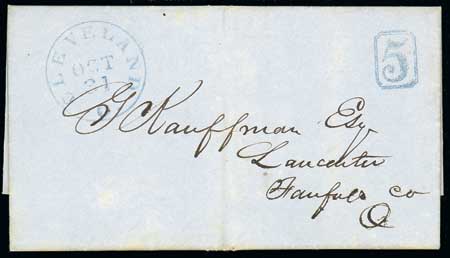 CLEVELAND O.
OCT
21
5
G Kauffman Esq
Lancaster
Fairfield Co
O